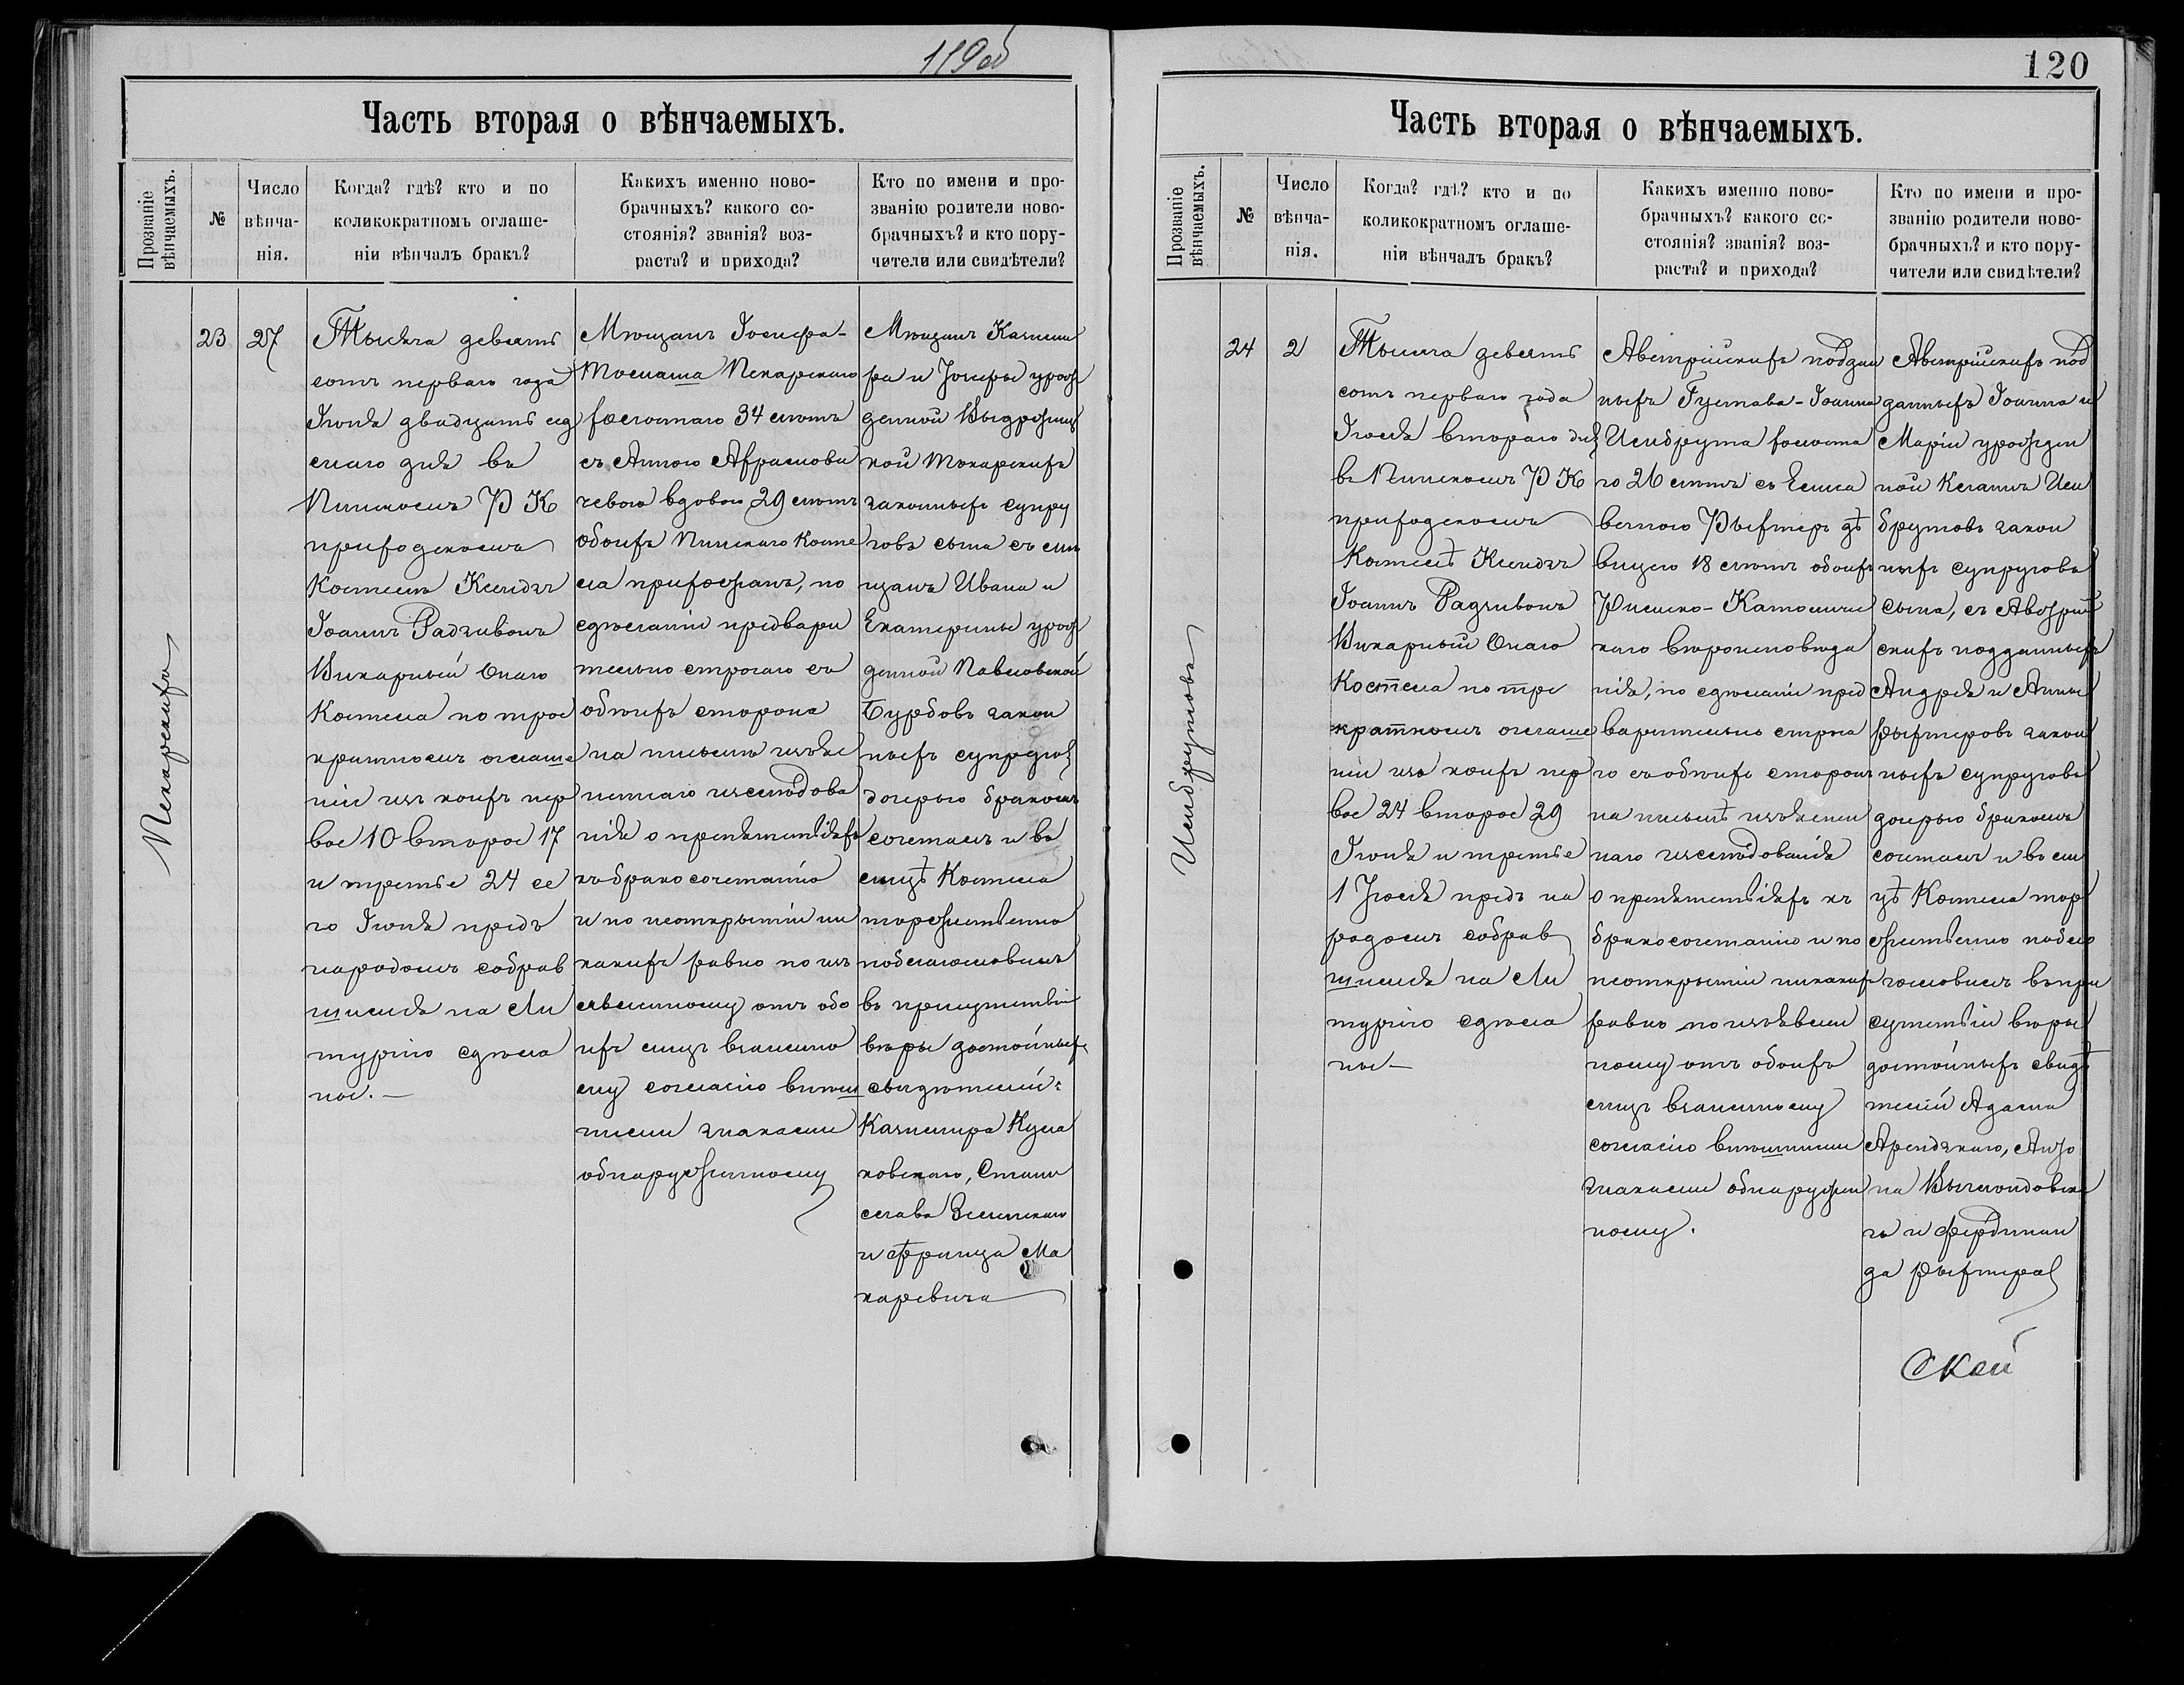 119 об
Часть вторая о вѣнчаемыхъ.
Прозваніе вѣнчаемыхъ.
№
Число вѣнча-
нія.
Когда? гдѣ? кто и по
коликократномъ оглаше-
ніи вѣнчалъ бракъ?
Какихъ именно ново-
брачныхъ? какого со-
стоянія? званія? воз-
раста? и прихода?
Кто по имени и про-
званію родители ново-
брачныхъ? и кто пору-
чители или свидѣтели?
Пекарскихъ
23
27
Тысяча девять
сотъ перваго года
Іюня двадцать сед
маго дня въ
Пинскомъ Р К
приходскомъ
Костелѣ Ксендзъ
Іоаннъ Радзивонъ
Викарный Онаго
Костела по трое
кратномъ оглаше
ніи изъ коихъ пер
вое 10 второе 17
и третье 24 се
го Іюня предъ
народомъ собрав
шимся на Ли
тургію сдѣла
ное.—
Мѣщанъ Іосифа-
Томаша Пекарскаго
холостаго 34 лѣтъ
съ Анною Абрамови
чевою вдовою 29 лѣтъ
обоихъ Пинскаго Косте
ла прихожанъ, по
сдѣланіи предвари
тельно строгаго съ
обѣихъ сторонъ
на письмѣ изъяс
неннаго изслѣдова
нія о препятствіяхъ
къ бракосочетанію
и по неоткрытіи ни
какихъ равно по изъ
явленному отъ обо
ихъ лицъ взаимно
му согласію внѣш
ними знаками
обнаруженному
Мѣщанъ Казими
ра и Іозефы урож
денной Выдрожиц
кой Пекарскихъ
законныхъ супру
говъ сына съ мѣ
щанъ Ивана и
Екатерины урож
денной Павловской
Бурбовъ закон
ныхъ супруговъ
дочерью бракомъ
сочеталъ и въ
лицѣ Костела
торжественно
поблагословилъ
въ присутствіи
вѣры достойныхъ
свидѣтелей:
Казимира Кула
ковскаго, Стани
слава Зелинскаго
и Франца Ма
каревича
120
Часть вторая о вѣнчаемыхъ.
Прозваніе вѣнчаемыхъ.
№
Число вѣнча-
нія.
Когда? гдѣ? кто и по
коликократномъ оглаше-
ніи вѣнчалъ бракъ?
Какихъ именно ново-
брачныхъ? какого со-
стоянія? званія? воз-
раста? и прихода?
Кто по имени и про-
званію родители ново-
брачныхъ? и кто пору-
чители или свидѣтели?
Ильбрутовъ
24
2
Тысяча девять
сотъ перваго года
Іюля втораго дня
въ Пинскомъ Р К
приходскомъ
Костелѣ Ксендзъ
Іоаннъ Радзивонъ
Викарный Онаго
Костела по трое
кратномъ оглаше
ніи изъ коихъ пер
вое 24 второе 29
Іюня и третье
1 Іюля предъ на
родомъ собрав
шимся на Ли
тургію сдѣла
ны—
Австрійскихъ поддан
ныхъ Густава-Іоанна
Ильбрута холоста
го 26 лѣтъ съ Елиса
ветою Рыхтеръ дѣ
вицею 18 лѣтъ обоихъ
Римско-Католичес
каго вѣроисповѣда
нія, по сдѣланіи пред
варительно строга
го съ обѣихъ сторонъ
на письмѣ изъяснен
наго изслѣдованія
о препятствіяхъ къ
бракосочетанію и по
неоткрытіи никакихъ
равно по изъявлен
ному отъ обоихъ
лицъ взаимному
согласію внѣшними
знаками обнаружен
ному.
Австрійскихъ под
данныхъ Іоанна и
Маріи урожден
ной Ксганъ Иль
брутовъ закон
ныхъ супруговъ
сына, съ Австрій
скихъ подданныхъ
Андрея и Анны
Рыхтеровъ закон
ныхъ супруговъ
дочерью бракомъ
сочеталъ и въ ли
цѣ Костела тор
жественно побла
гословилъ въ при
сутствіи вѣры
достойныхъ свидѣ
телей Адама
Арендзкаго, Анто
на Вылюндовска
го и Фердинан
да Рыхтера